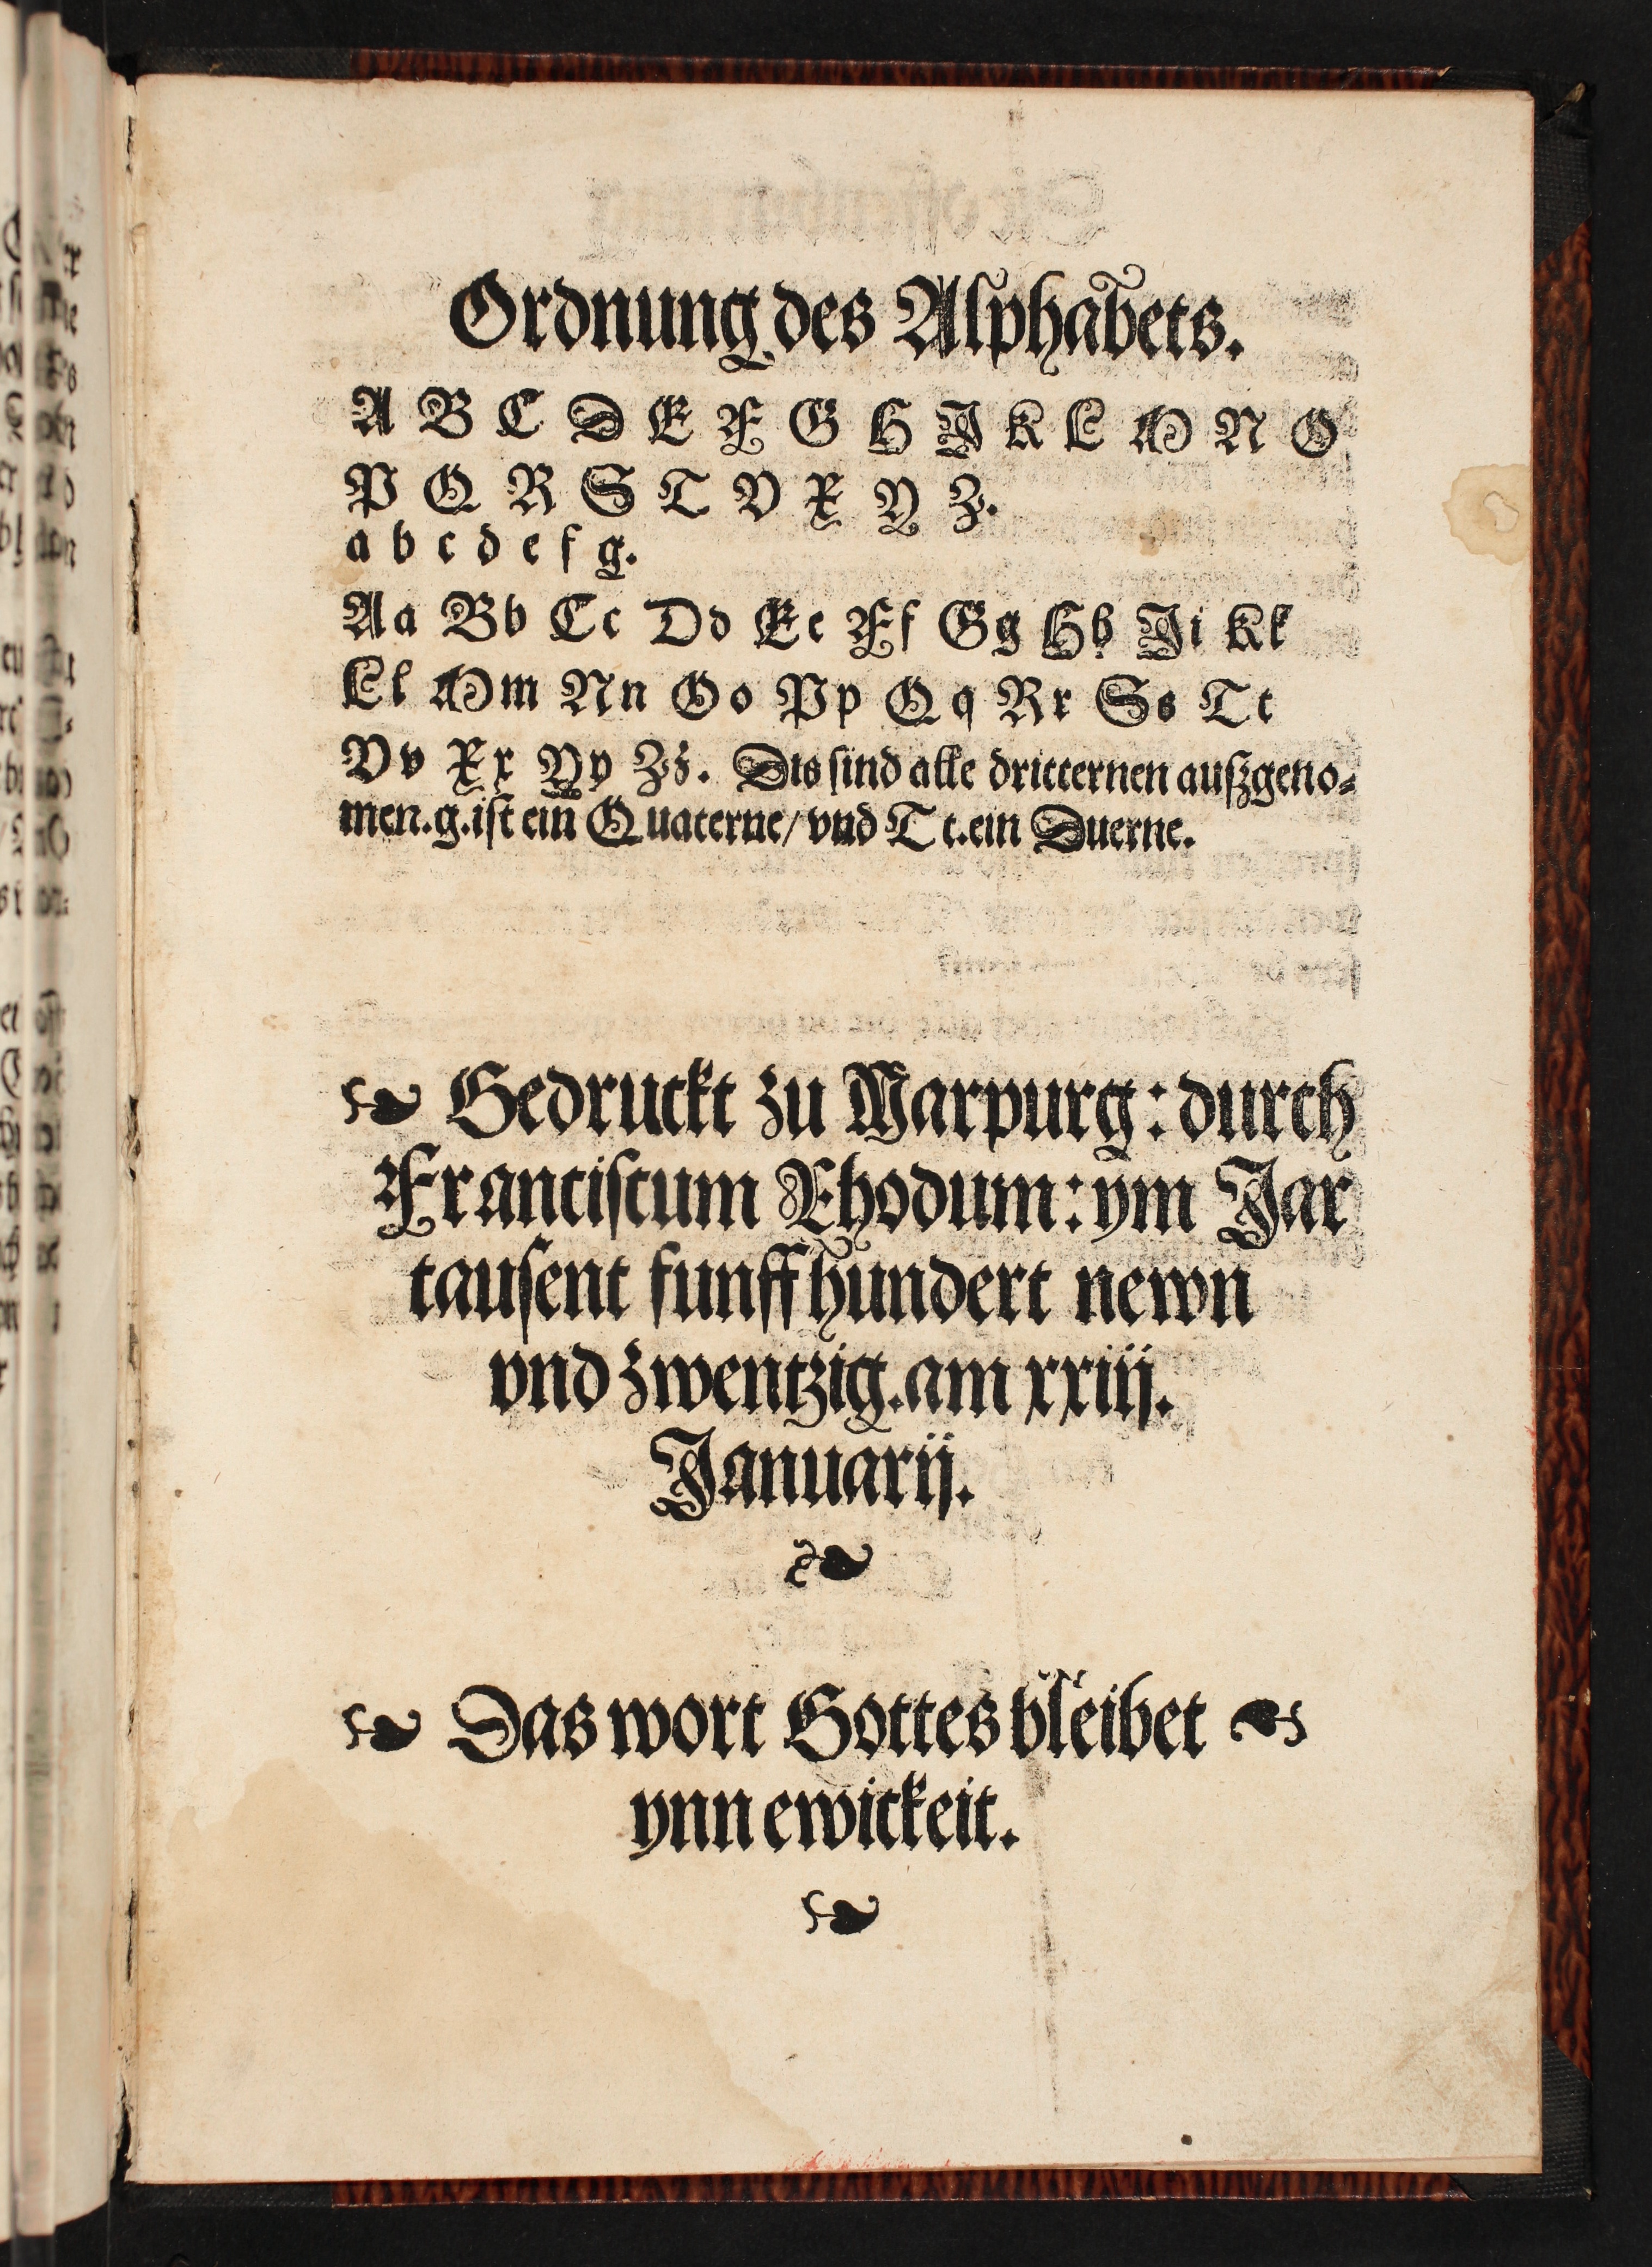 Ordnung des Alphabets.
A B C D E F G H J K L M N O
P Q R S T V X Y Z.
a b c d e f g.
Aa Bb Cc Dd Ee Ff Gg Hh Ji Kk
Ll Mm Nn Oo Pp Qq Rr Ss Tt
Vv Xx Yy Zz. Dis sind alle dritternen auszgeno⸗
men.g.ist ein Quaterne/ vnd Tt.ein Duerne.
Gedruckt zu Marpurg: durch
Franciscum Rhodum: ym Jar
tausent funffhundert newn
vnd zwentzig.am xxiij.
Januarij.
Das wort Gottes bleibet
ynn ewickeit.